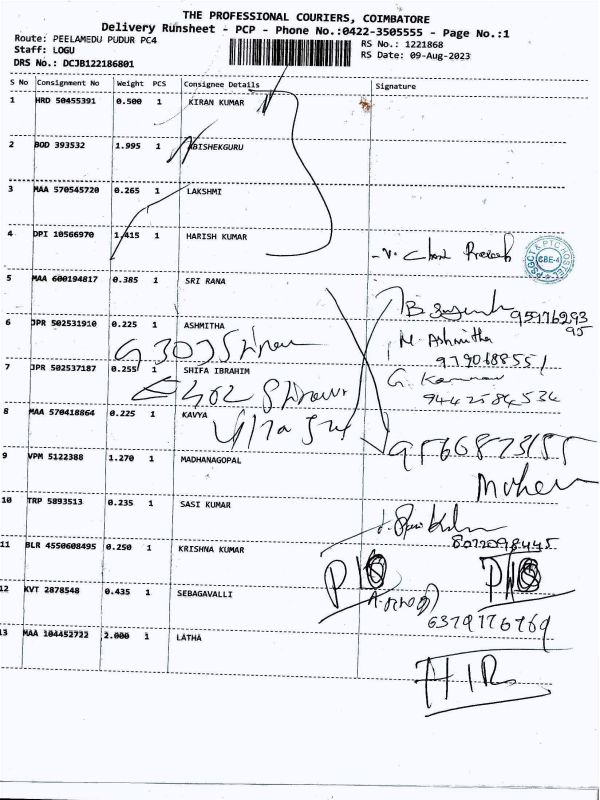 THE PROFESSIONAL COURIERS, COIMBATORE
Delivery Runsheet - PCP - Phone No.:0422-3505555 - Page No.:1
Route: PEELAMEDU PUDUR PC4
RS No.: 1221868
Staff: LOGU
RS Date: 09-Aug-2023
DRS No.: DCJB122186801
S No Consignment No Weight PCS Consignee Details Signature
1 HRD 50455391 0.500 1 KIRAN KUMAR
2 BOD 393532 1.995 1 ABISHEKGURU
3 MAA 570545720 0.265 1 LAKSHMI
4 DPI 10566970 1.415 1 HARISH KUMAR
PSGCT & PTC HOSTEL
CBE-4
5 MAA 600194817 0.385 1 SRI RANA
6 JPR 502531910 0.225 1 ASHMITHA
M. Ashmitha
9790688551
7 JPR 502537187 0.255 1 SHIFA IBRAHIM
9442584534
8 MAA 570418864 0.225 1 KAVYA
9566873155
9 VPM 5122388 1.270 1 MADHANAGOPAL
10 TRP 5893513 0.235 1 SASI KUMAR
11 BLR 4550608495 0.250 1 KRISHNA KUMAR
12 KVT 2878548 0.435 1 SEBAGAVALLI
6379176769
13 MAA 104452722 2.000 1 LATHA